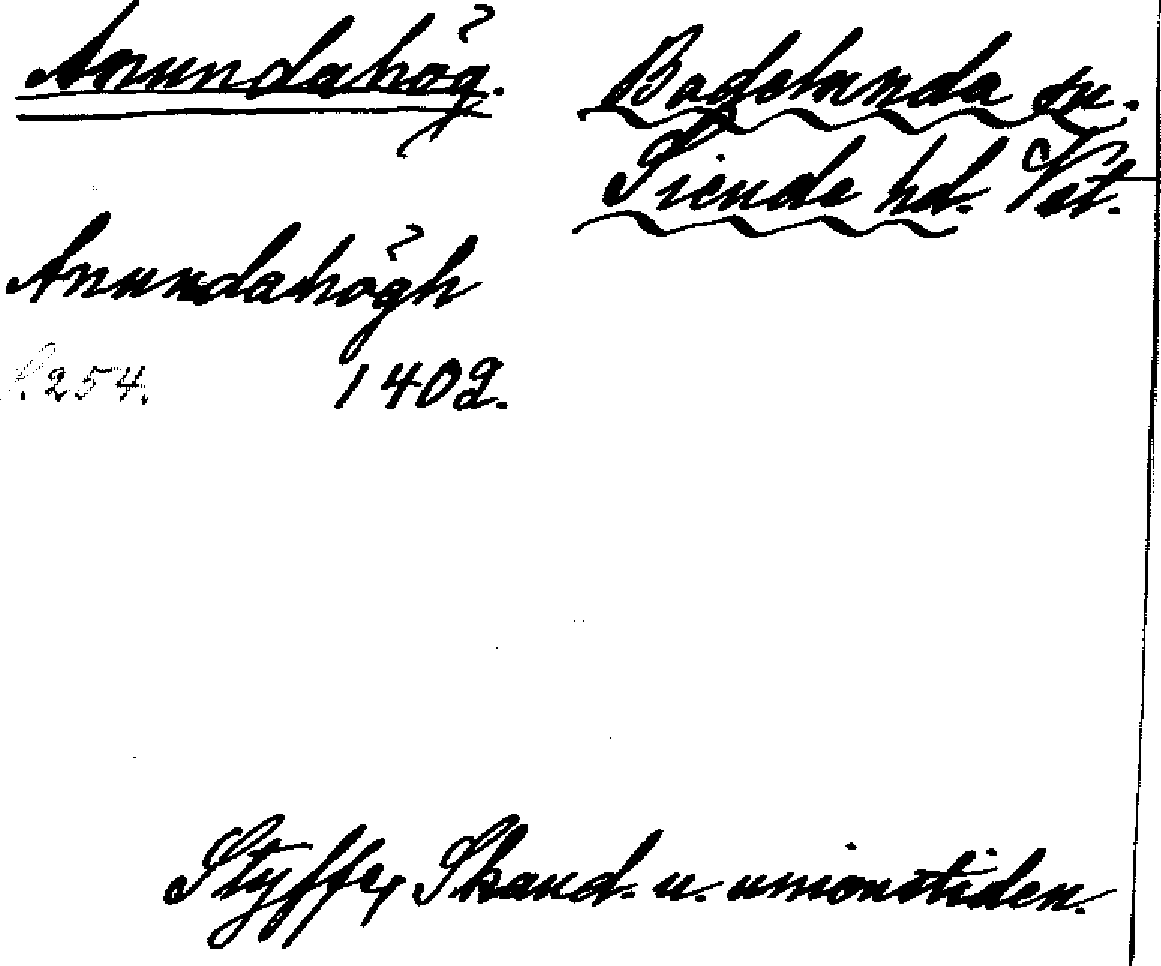 Anundahög.
Badelunda sn.
Siende hd. Vst.
Anundahögh
S. 254. 1402.
Styffe, Skand. u. unionstiden.